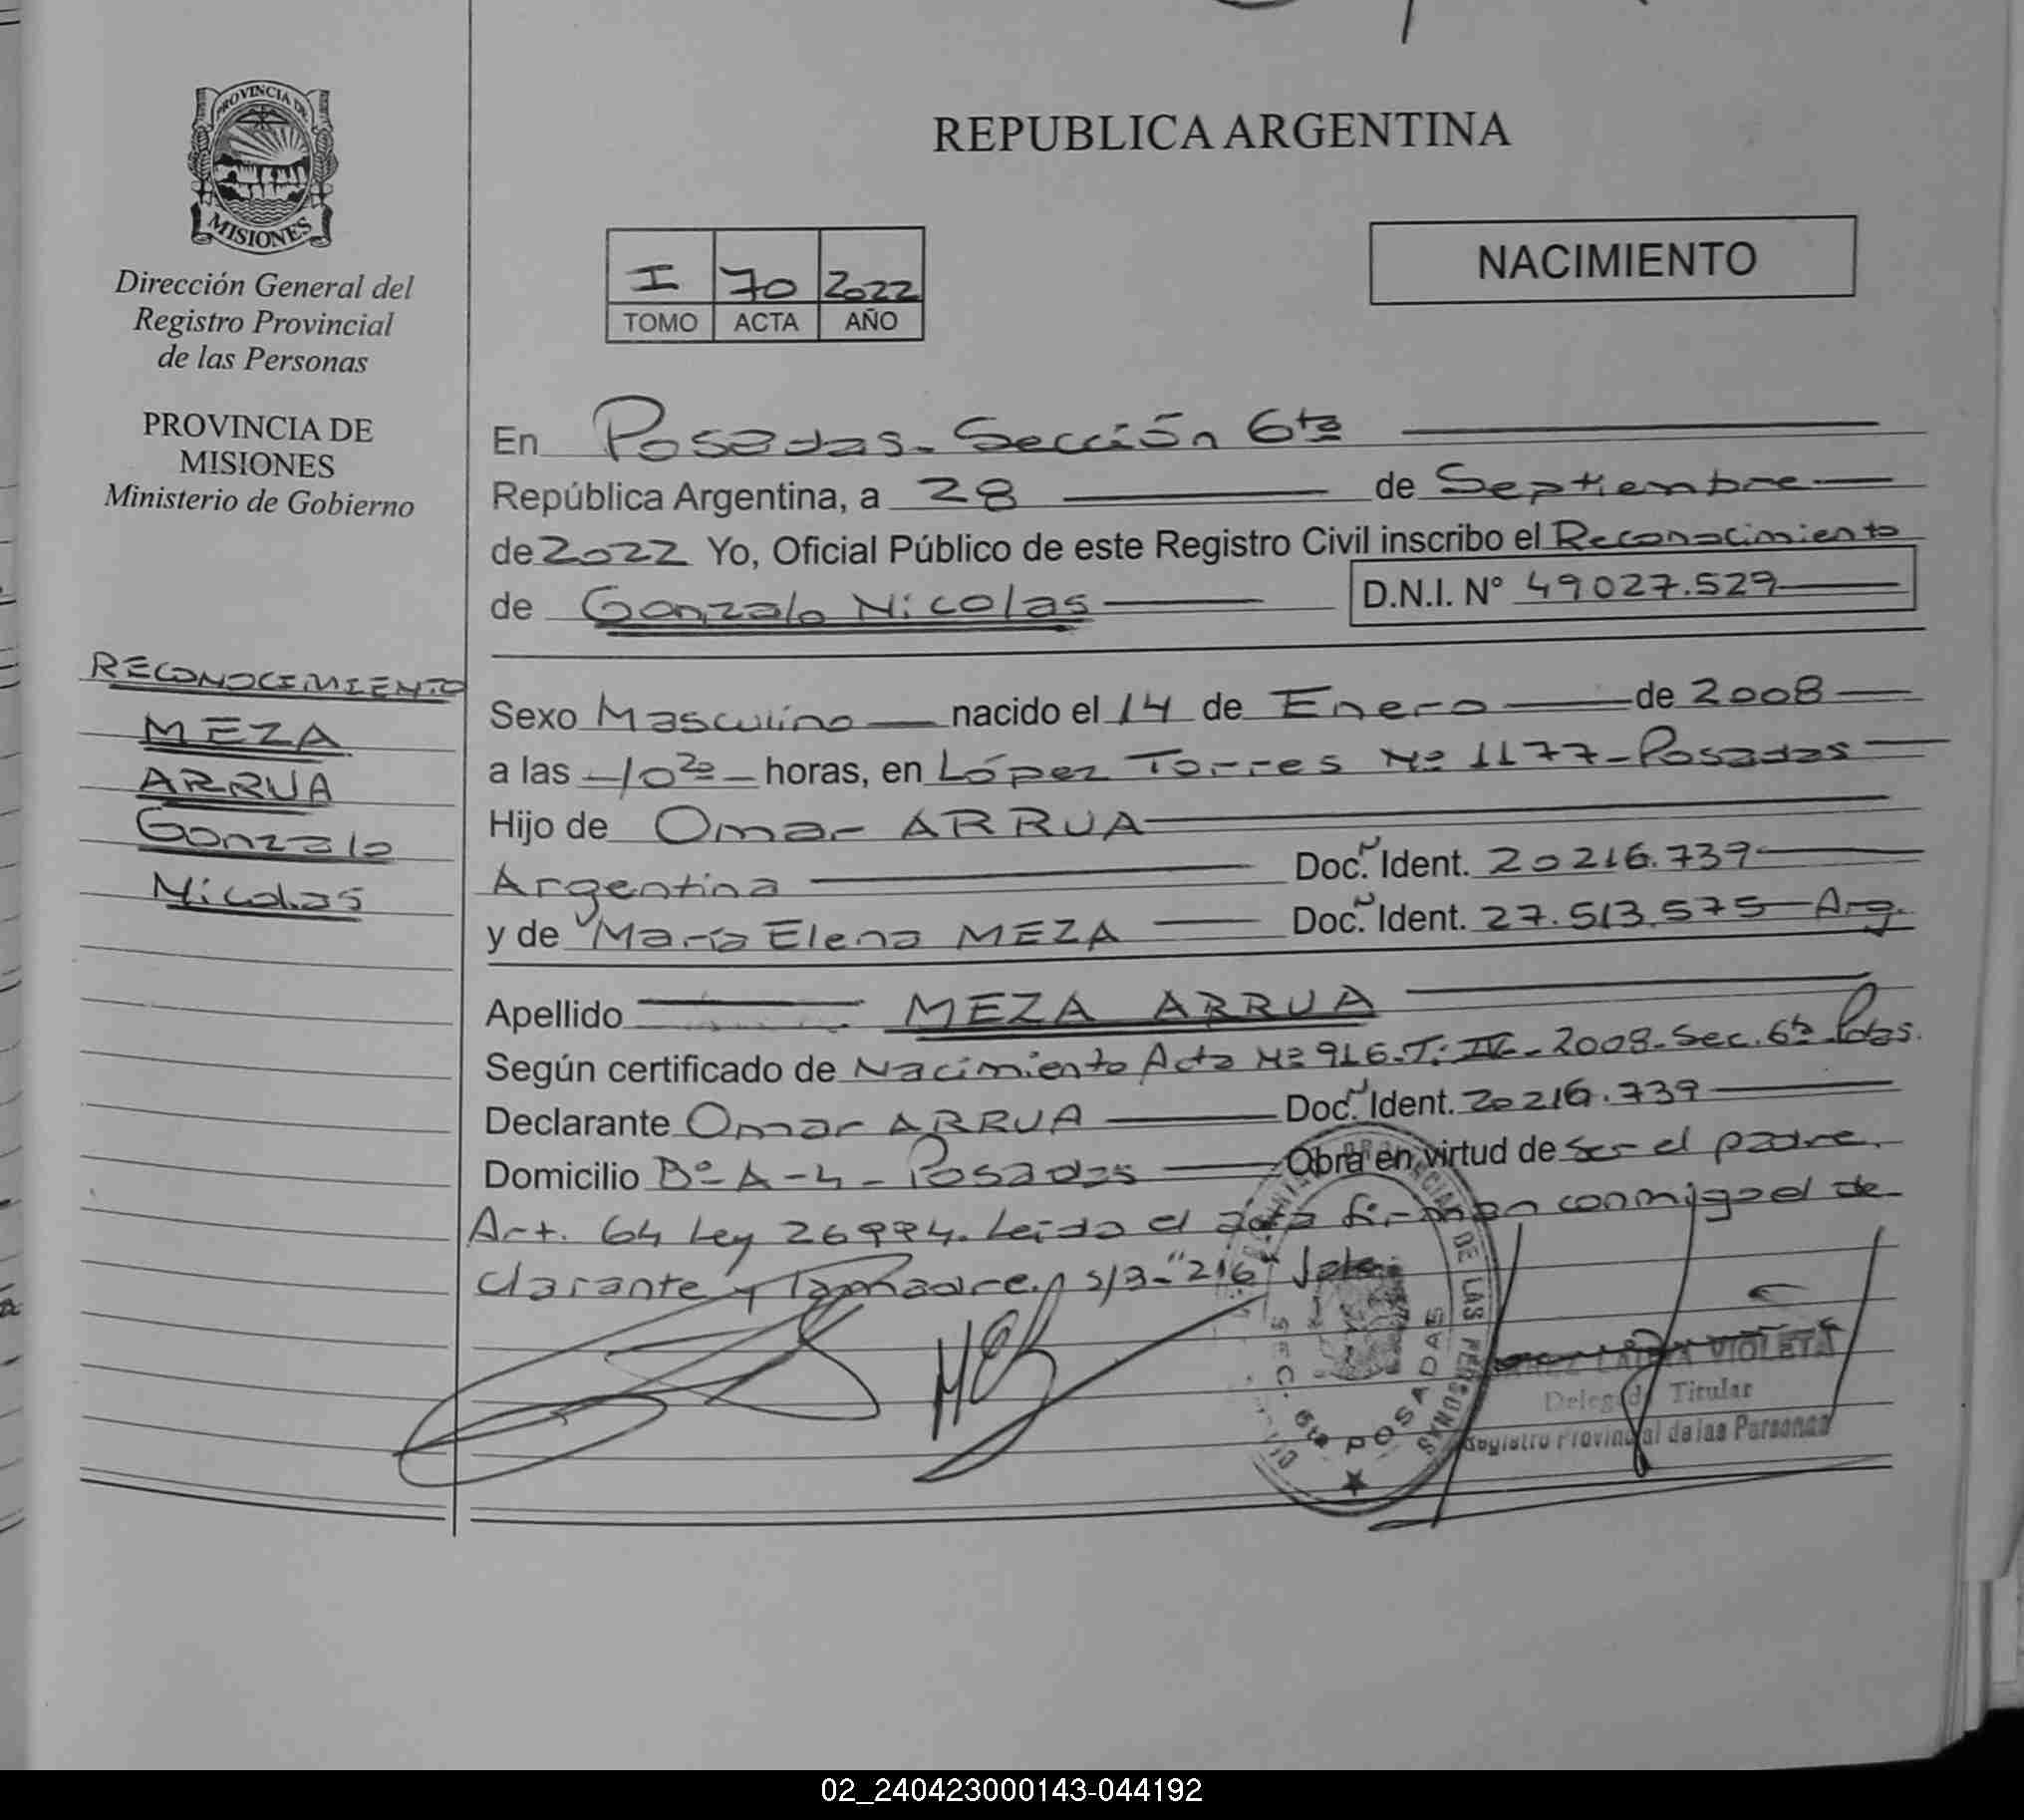 PROVINCIA DE
MISIONES
Dirección General del
Registro Provincial
de las Personas
PROVINCIA DE
MISIONES
Ministerio de Gobierno
RECONOCIMIENTO
MEZA
ARRUA
Gonzalo
Nicolas
REPUBLICA ARGENTINA
I 70 2022
TOMO ACTA AÑO
NACIMIENTO
En Posadas - Sección 6ta
República Argentina, a 28 de Septiembre
de 2022 Yo, Oficial Público de este Registro Civil inscribo el Reconocimiento
de Gonzalo Nicolas D.N.I. N° 49027.529
Sexo Masculino nacido el 14 de Enero de 2008
a las 10 20 horas, en López Torres Nº 1177 - Posadas
Hijo de Omar ARRUA
Argentina Doc. Ident. 20216.739
y de María Elena MEZA Doc. Ident. 27.513.575 - Arg.
Apellido MEZA ARRUA
Según certificado de Nacimiento Acta Nº 916 - T: IV - 2008 - Sec. 6ta Pdas.
Declarante Omar ARRUA Doc. Ident. 20216.739
Domicilio Bº A-4 - Posadas Obra en virtud de ser el padre.
Art. 64 Ley 26994. Leida el acta firman conmigo el de-
clarante y la madre. s/3 - "216" Vale.
SEC. 6ta POSADAS
DE LAS PERSONAS
LAURA VIOLETA
Delegada Titular
Registro Provincial de las Personas
02_240423000143-044192